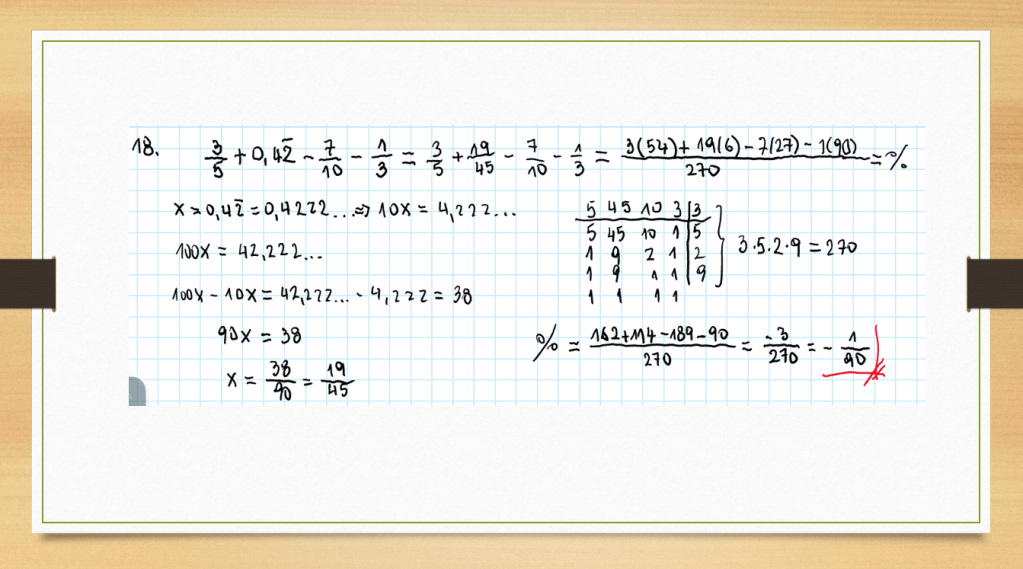 18. 3/5 + 0,42̅ - 7/10 - 1/3 = 3/5 + 19/45 - 7/10 - 1/3 = (3(54) + 19(6) - 7(27) - 1(90))/270 = %
x = 0,42̅ = 0,4222... ⇒ 10x = 4,222...
100x = 42,222...
100x - 10x = 42,222... - 4,222 = 38
90x = 38
x = 38/90 = 19/45
5 45 10 3 | 3
5 45 10 1 | 5
1 9 2 1 | 2
1 9 1 1 | 9
1 1 1 1
} 3·5·2·9 = 270
% = (162+114-189-90)/270 = -3/270 = -1/90